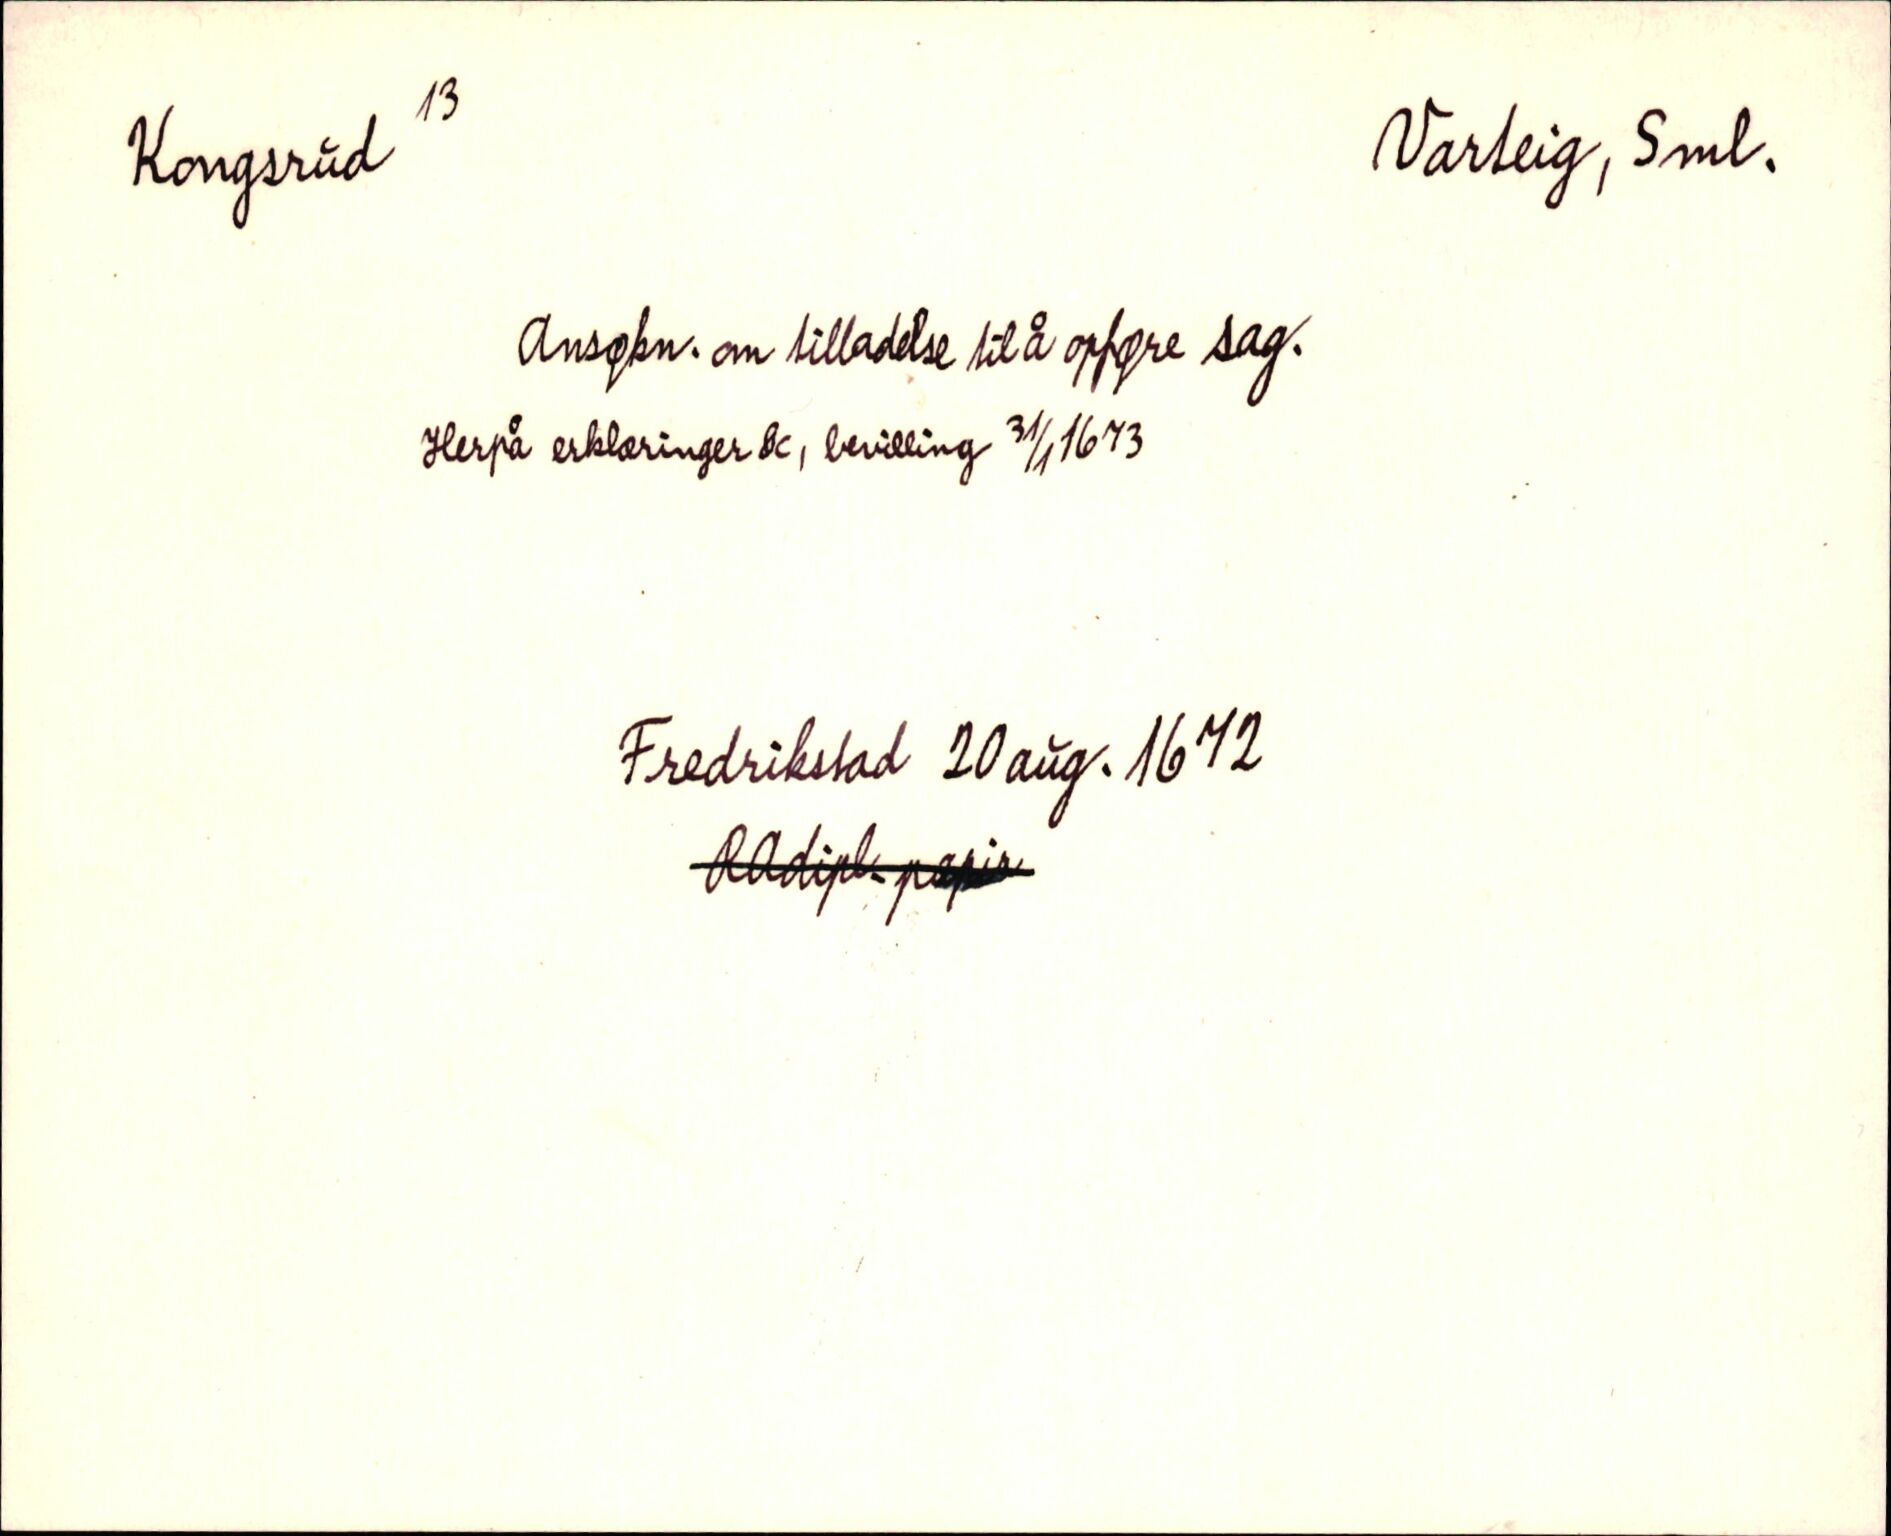 Kongsrud 13
Varteig, Sml.
Ansøkn. om tilladelse til å oppføre sag.
Herpå erklæringer &c, bevilling 31/1 1673
Fredrikstad 20 aug. 1672
RA dipl. papir